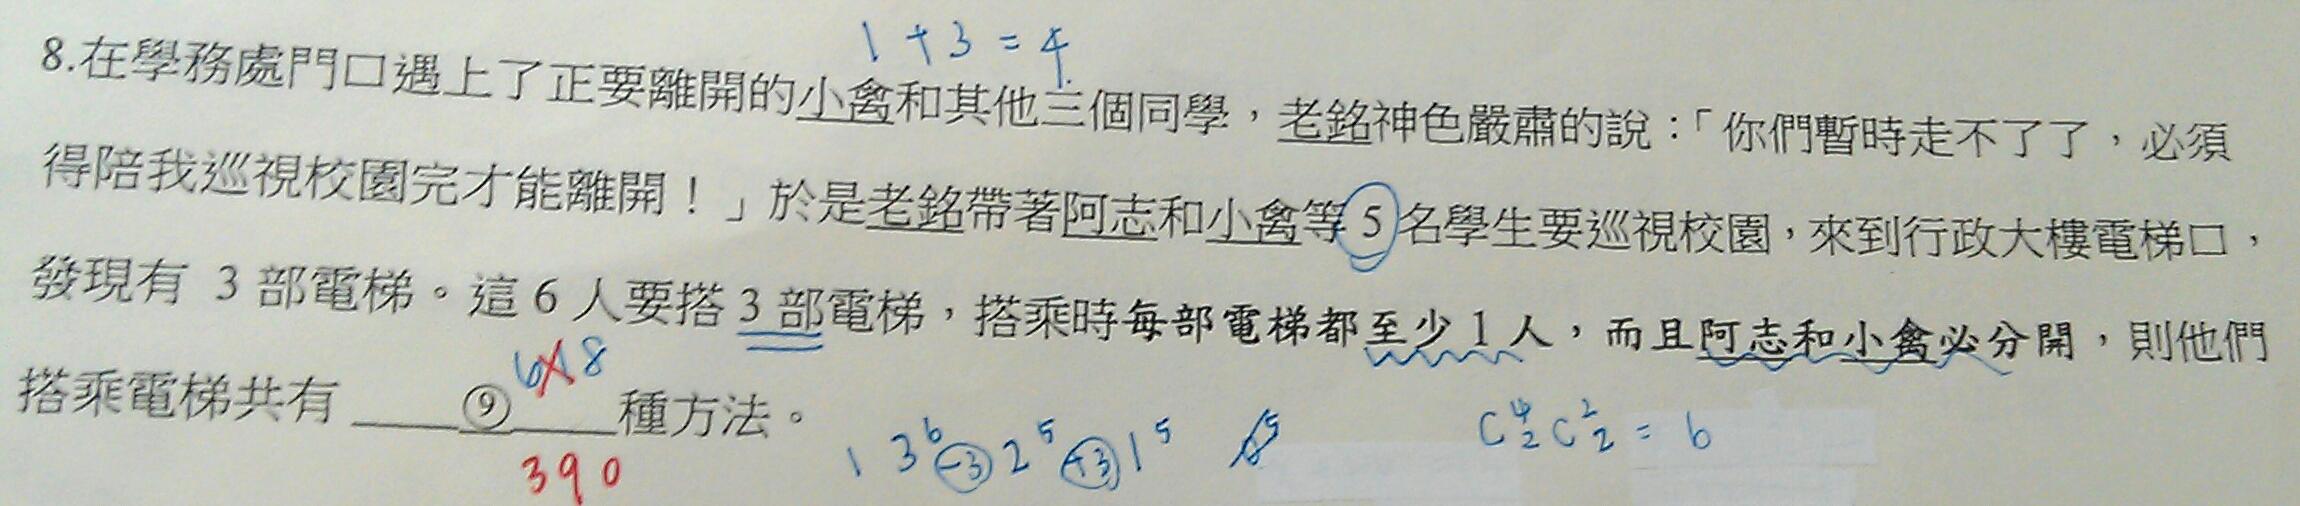 1+3=4
8.在學務處門口遇上了正要離開的小禽和其他三個同學，老銘神色嚴肅的說：「你們暫時走不了了，必須
得陪我巡視校園完才能離開！」於是老銘帶著阿志和小禽等5名學生要巡視校園，來到行政大樓電梯口，
發現有 3 部電梯。這 6 人要搭 3 部電梯，搭乘時每部電梯都至少 1 人，而且阿志和小禽必分開，則他們
搭乘電梯共有 ⑨ 種方法。
390
1 3⁶ -3 2⁵ +3 1⁵
C⁴₂C²₂=6